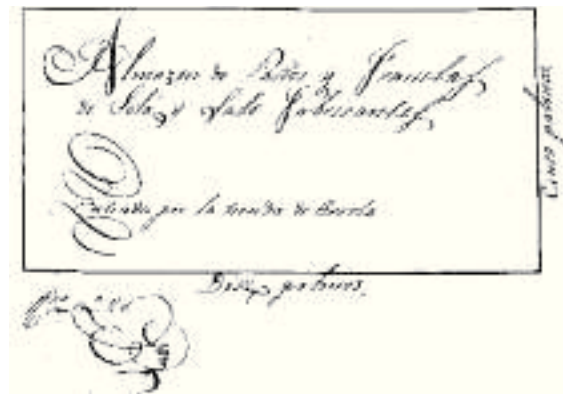 Almazen de Paños y Franelas
de Sola, y Fabricantes
Entrada por la tienda de
Cinco palmos
palmos